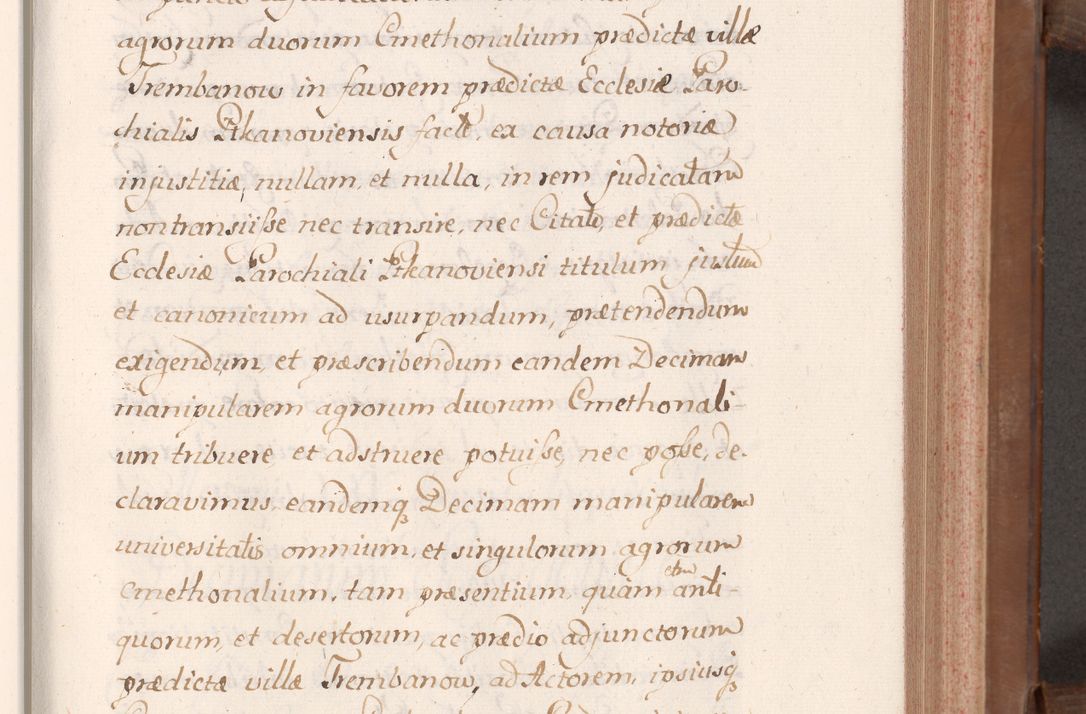 agrorum duorum Cmethonalium prædictæ villæ
Trembanow in favorem prædictæ Ecclesiæ Paro-
chialis Ptkanoviensis factæ, ex causa notoriæ
injustitiæ, nullam, et nulla, in rem judicatam
non transiisse nec transire, nec Citato, et prædictæ
Ecclesiæ Parochiali Ptkanoviensi titulum justum
et canonicum ad usurpandum, prætendendum
exigendum, et præscribendum eandem Decimam
manipularem agrorum duorum Cmethonali-
um tribuere, et adstruere potuisse, nec posse, de-
claravimus, eandemq Decimam manipularem
universitatis omnium, et singulorum agrorum
Cmethonalium, tam præsentium quàm etm anti-
quorum, et desertorum, ac prædio adjunctorum
prædictæ villæ Trembanow, ad Actorem, ipsiusq